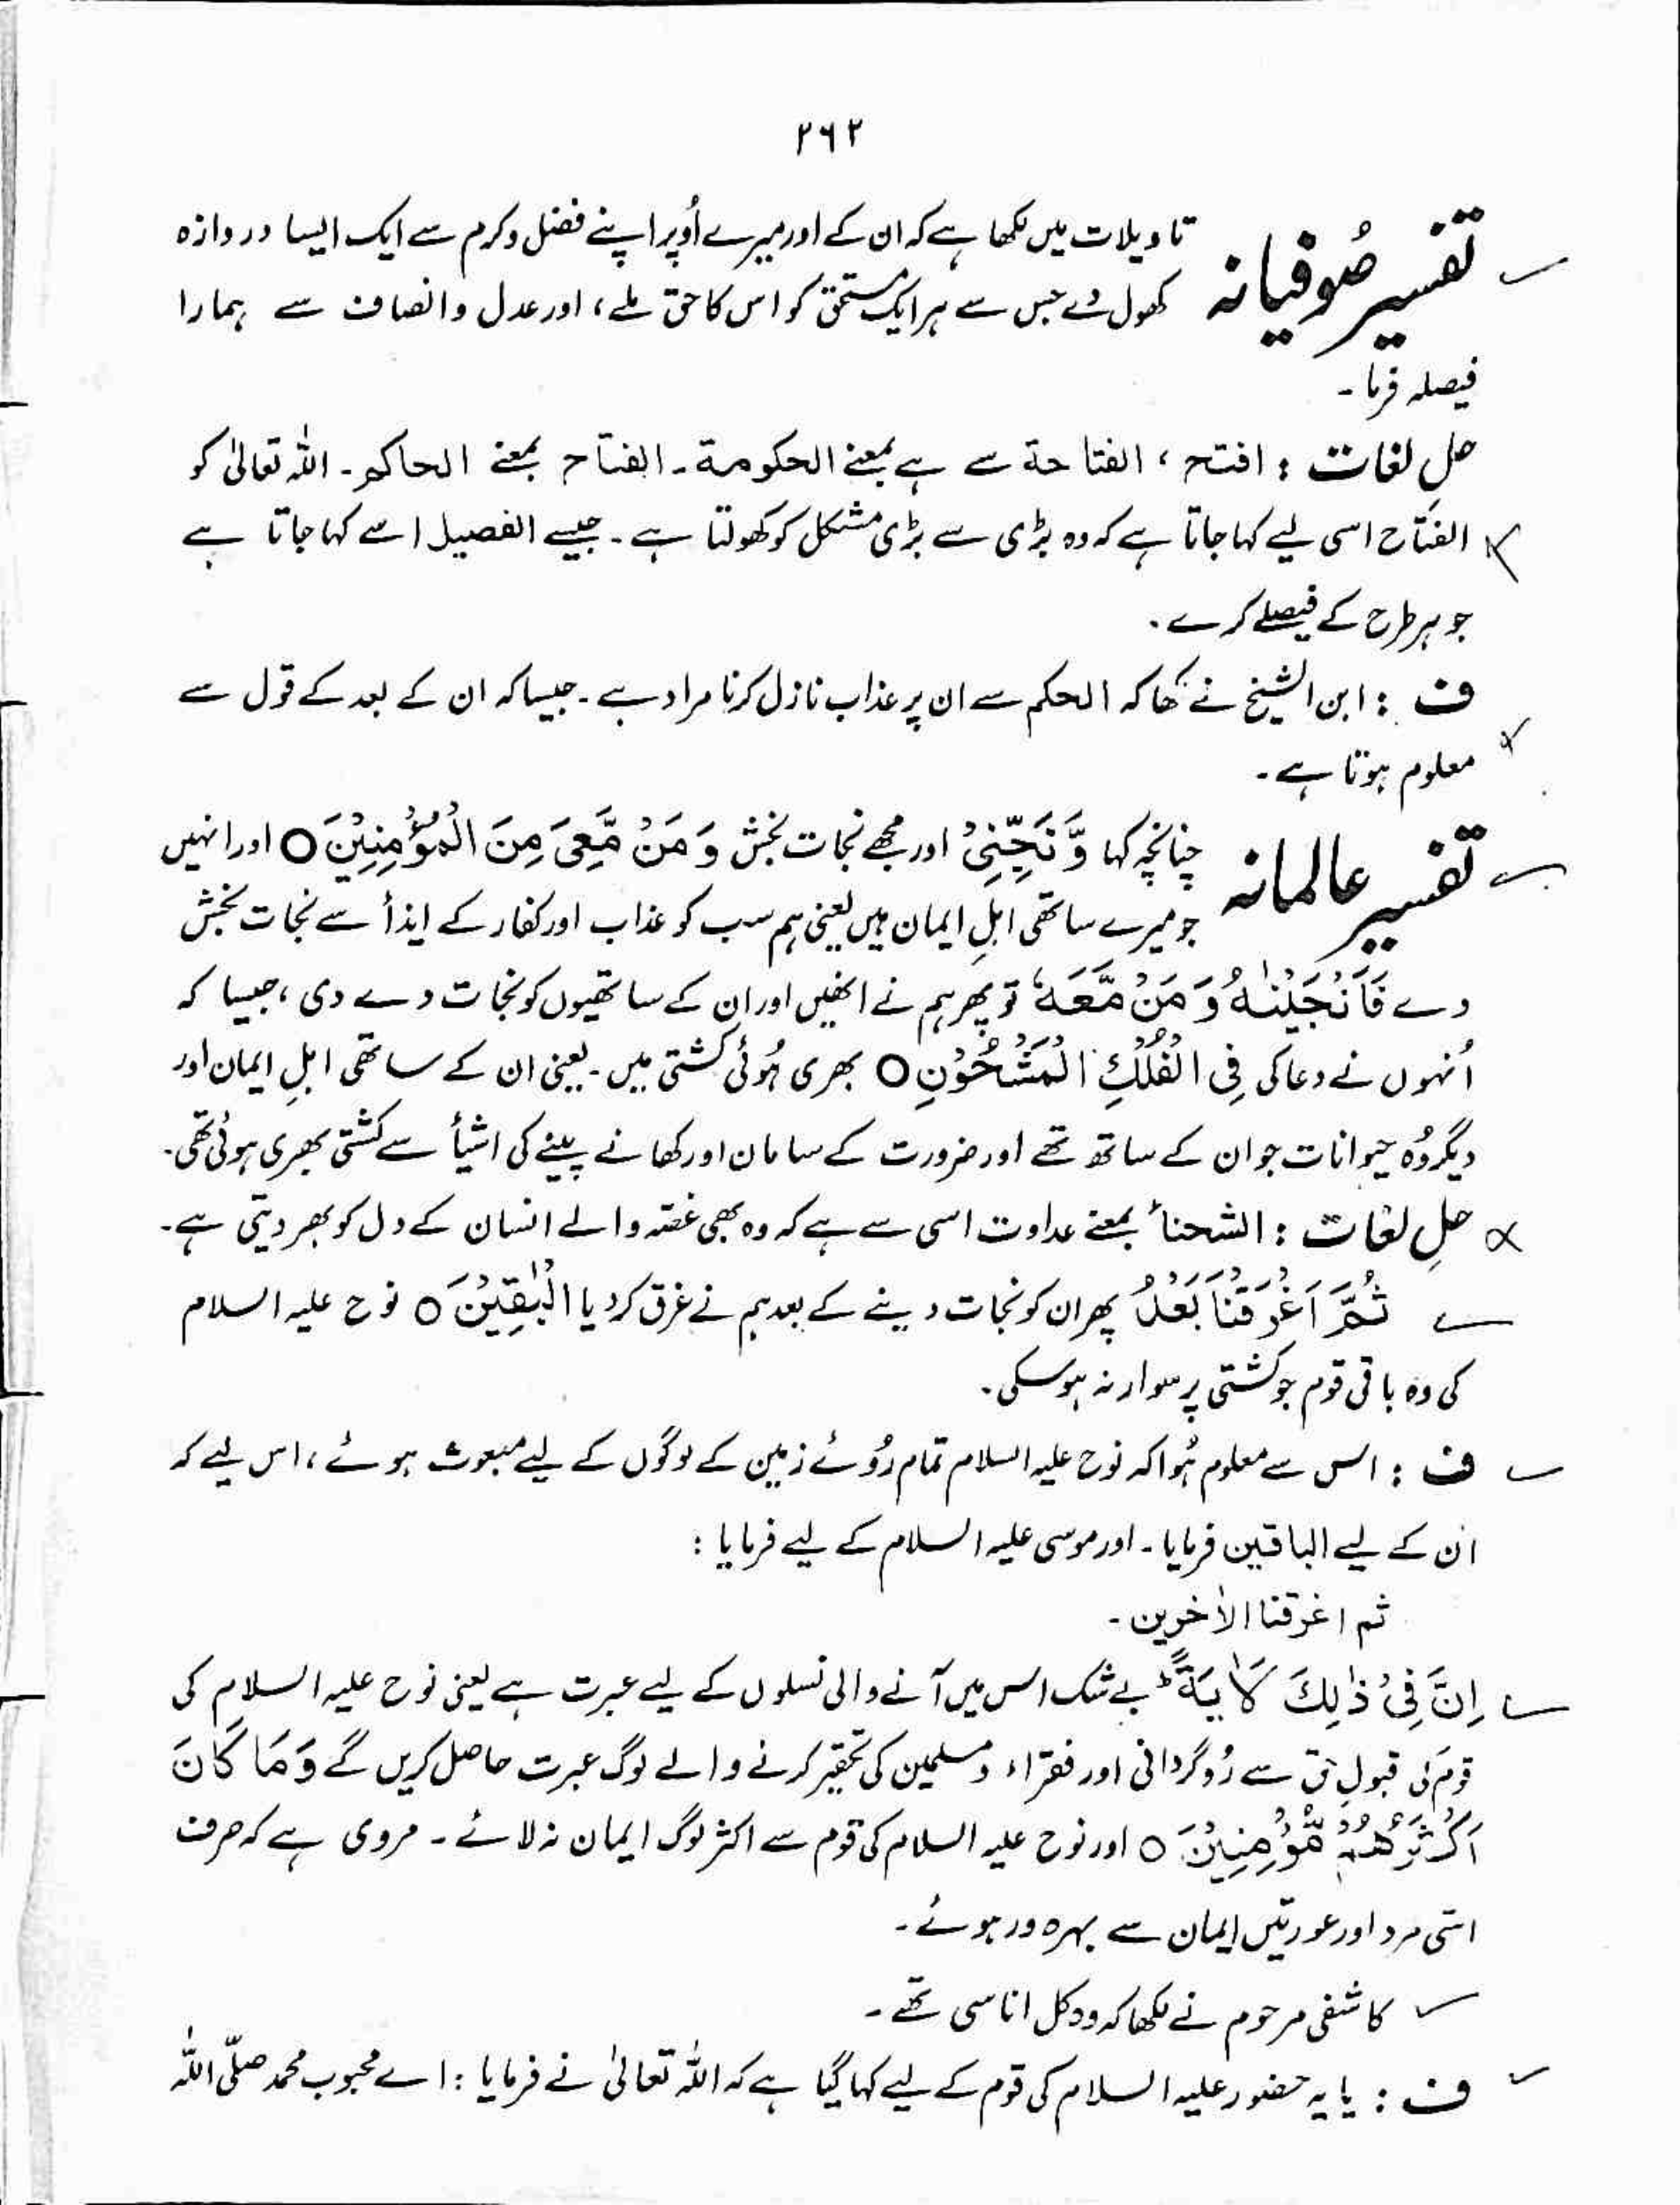 ۲۶۲
تفسیر صُوفیانہ
تاویلات میں لکھا ہے کہ ان کے اور میرے اُوپر اپنے فضل و کرم سے ایک ایسا دروازہ
کھول دے جس سے ہر ایک مستحق کو اس کا حق ملے، اور عدل و انصاف سے ہمارا
فیصلہ فرما۔
حلِ لغات : افتح ، الفتاحة سے ہے بمعنے الحکومة۔ الفتاح بمعنے الحاکم۔ اللہ تعالیٰ کو
الفتّاح اسی لیے کہا جاتا ہے کہ وہ بڑی سے بڑی مشکل کو کھولتا ہے۔ جیسے الفصیل اسے کہا جاتا ہے
جو ہر طرح کے فیصلے کرے۔
ف : ابن الشیخ نے کہا کہ الحکم سے ان پر عذاب نازل کرنا مراد ہے۔ جیسا کہ ان کے بعد کے قول سے
معلوم ہوتا ہے۔
تفسیر عالمانہ
چنانچہ کہا وَّ نَجِّنِیْ اور مجھے نجات بخش وَ مَنْ مَّعِیَ مِنَ الْمُؤْمِنِیْنَ ○ اور انہیں
جو میرے ساتھی اہلِ ایمان ہیں یعنی ہم سب کو عذاب اور کفار کے ایذأ سے نجات بخش
دے فَاَنْجَیْنٰهُ وَ مَنْ مَّعَهٗ تو پھر ہم نے انھیں اور ان کے ساتھیوں کو نجات دے دی ، جیسا کہ
اُنہوں نے دعا کی فِی الْفُلْكِ الْمَشْحُوْنِ ○ بھری ہُوئی کشتی میں۔ یعنی ان کے ساتھی اہلِ ایمان اور
دیگر وُہ حیوانات جو ان کے ساتھ تھے اور ضرورت کے سامان اور کھانے پینے کی اشیأ سے کشتی بھری ہوئی تھی۔
حلِ لغات : الشحنأ بمعنے عداوت اسی سے ہے کہ وہ بھی غصّہ والے انسان کے دل کو بھر دیتی ہے۔
ثُمَّ اَغْرَقْنَا بَعْدُ پھر ان کو نجات دینے کے بعد ہم نے غرق کر دیا الْبٰقِیْنَ ○ نوح علیہ السلام
کی وہ باقی قوم جو کشتی پر سوار نہ ہو سکی۔
ف : اس سے معلوم ہُوا کہ نوح علیہ السلام تمام رُوئے زمین کے لوگوں کے لیے مبعوث ہوئے ، اس لیے کہ
ان کے لیے الباقین فرمایا۔ اور موسی علیہ السلام کے لیے فرمایا :
ثم اغرقنا الاٰخرین۔
اِنَّ فِیْ ذٰلِكَ لَاٰیَةً ؕ بے شک اس میں آنے والی نسلوں کے لیے عبرت ہے یعنی نوح علیہ السلام کی
قوم کی قبولِ حق سے رُوگردانی اور فقراء و مسلمین کی تحقیر کرنے والے لوگ عبرت حاصل کریں گے وَ مَا كَانَ
اَكْثَرُهُمْ مُّؤْمِنِیْنَ ○ اور نوح علیہ السلام کی قوم سے اکثر لوگ ایمان نہ لائے۔ مروی ہے کہ صرف
اسّی مرد اور عورتیں ایمان سے بہرہ ور ہوئے۔
کاشفی مرحوم نے لکھا کہ وہ کل اناسی تھے۔
ف : یا یہ حضور علیہ السلام کی قوم کے لیے کہا گیا ہے کہ اللہ تعالیٰ نے فرمایا : اے محبوب محمد صلّی اللہ